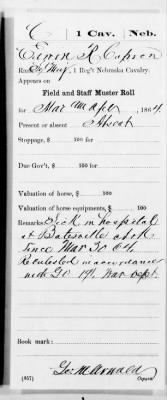 C | 1 Cav. | Neb.
Erwin R. Capron
Sgt Maj, 1 Reg't Nebraska Cavalry.
Appears on
Field and Staff Muster Roll
for Mar and Apr, 1864.
Present or absent Absent
Stoppage, $ 100 for
Due Gov't, $ 100 for
Valuation of horse, $ 100
Valuation of horse equipments, $ 100
Remarks: Sick in hospital
at Batesville Ark
since Mar 30 64
in accordance
with G.O. 191 War Dept.
Book mark:
Geo M Arnold
(857) Copyist.